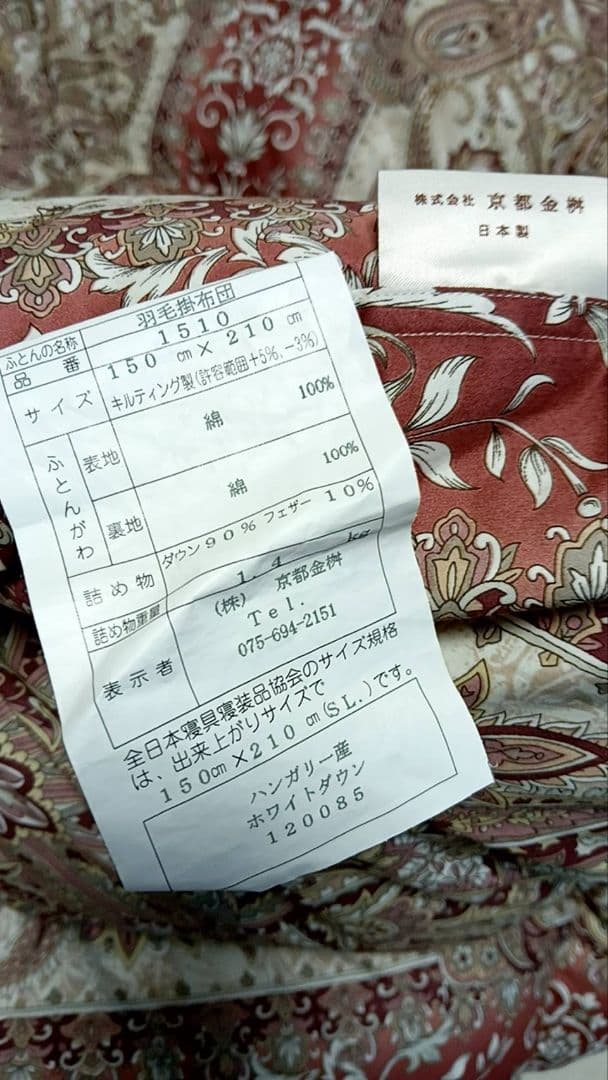 株式会社 京都金桝
日本製
ふとんの名称 羽毛掛布団
品番 1510
サイズ 150cm×210cm
キルティング製(許容範囲+5%,-3%)
ふとんがわ 表地 綿 100%
裏地 綿 100%
詰め物 ダウン90% フェザー10%
詰め物重量 1.4 kg
表示者 (株) 京都金桝
Tel.
075-694-2151
全日本寝具寝装品協会のサイズ規格
は、出来上がりサイズで
150cm×210cm(SL.)です。
ハンガリー産
ホワイトダウン
120085